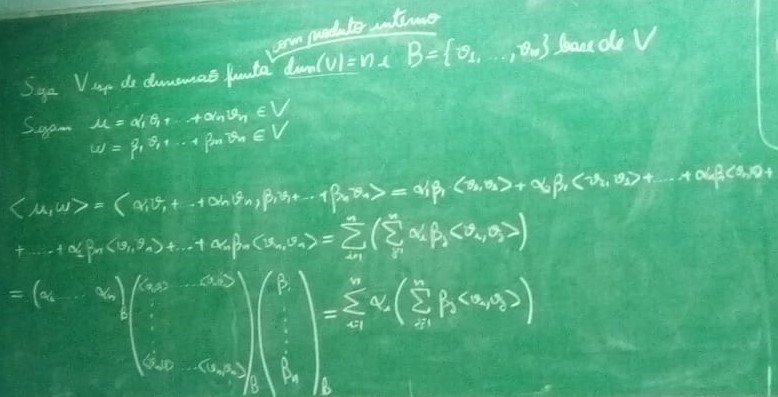 com produto interno
Seja V esp. de dimensão finita dim(V)=n e B={v₁, ..., vₙ} base de V
Sejam u = α₁v₁+...+αₙvₙ ∈ V
w = β₁v₁+...+βₙvₙ ∈ V
<u,w> = <α₁v₁+...+αₙvₙ, β₁v₁+...+βₙvₙ> = α₁β₁<v₁,v₁>+α₂β₁<v₂,v₁>+....+αₙβ₁<vₙ,v₁>+
+....+α₁βₙ<v₁,vₙ>+...+αₙβₙ<vₙ,vₙ> = ∑ⁿᵢ₌₁(∑ⁿⱼ₌₁ αᵢβⱼ<vᵢ,vⱼ>)
= (α₁ .... αₙ)_B (<v₁,v₁> ... <v₁,vₙ> ⋮ <vₙ,v₁> ... <vₙ,vₙ>)_B (β₁ ⋮ βₙ)_B = ∑ⁿᵢ₌₁ αᵢ(∑ⁿⱼ₌₁ βⱼ<vᵢ,vⱼ>)